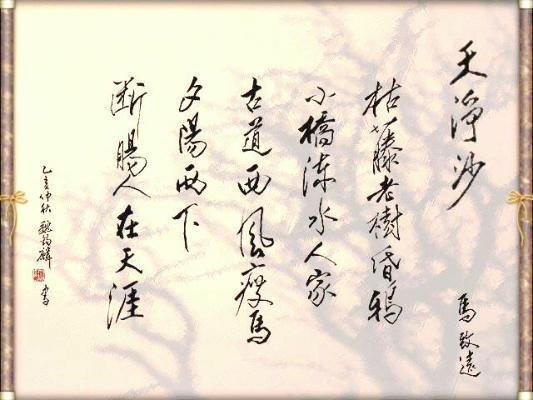 天淨沙
馬致遠
枯藤老樹昏鴉
小橋流水人家
古道西風瘦馬
夕陽西下
斷腸人在天涯
乙亥仲秋 魏
書